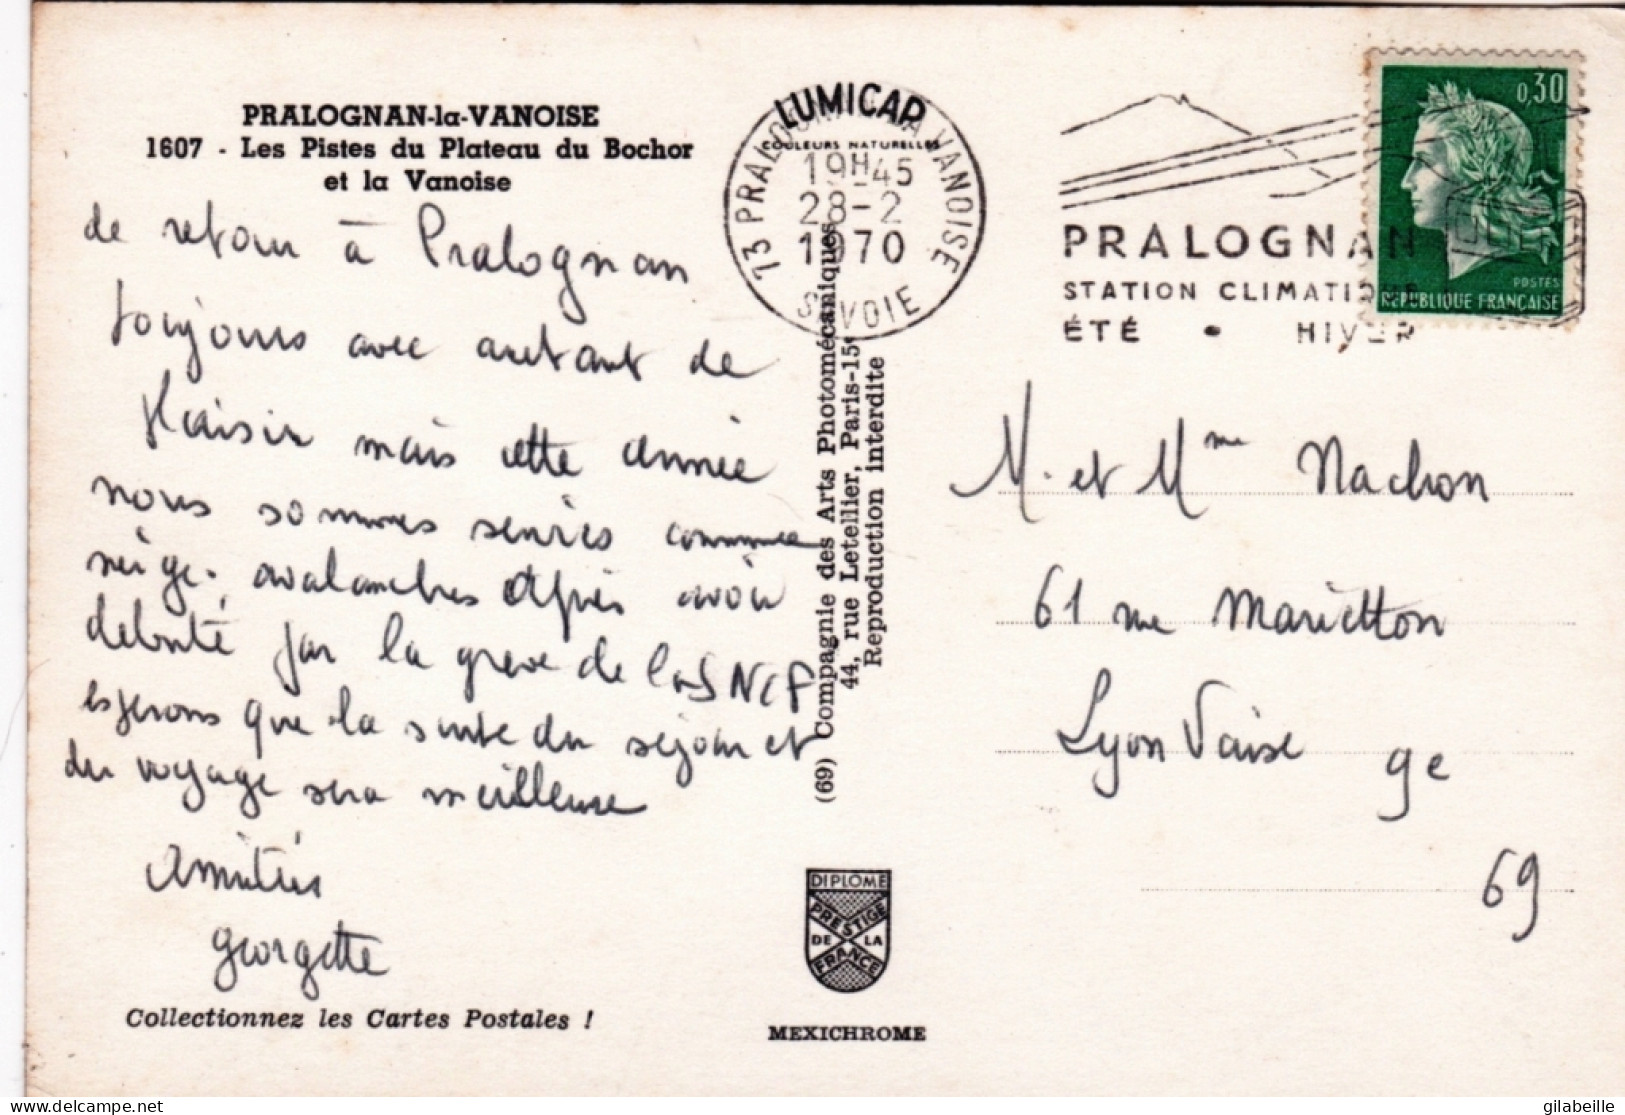 PRALOGNAN-la-VANOISE
1607 - Les Pistes du Plateau du Bochor
et la Vanoise
de retour à Pralognan
toujours avec autant de
plaisir mais cette année
nous sommes servies comme
neige. avalanches Après avoir
debuté par la greve de la SNCF
esperons que la suite du séjour et
du voyage sera meilleure
Amitiés
Georgette
Collectionnez les Cartes Postales !
LUMICAP
COULEURS NATURELLES
73 PRALOGNAN LA VANOISE
19H45
28-2
1970
SAVOIE
(69) Compagnie des Arts Photomécaniques
44, rue Letellier, Paris-15e
Reproduction interdite
DIPLOME
PRESTIGE
DE LA
FRANCE
MEXICHROME
PRALOGNAN
STATION CLIMATIQUE
ÉTÉ • HIVER
0,30
POSTES
REPUBLIQUE FRANÇAISE
M. et Mme Nachon
61 rue Marietton
Lyon Vaise 9e
69
gilabeille